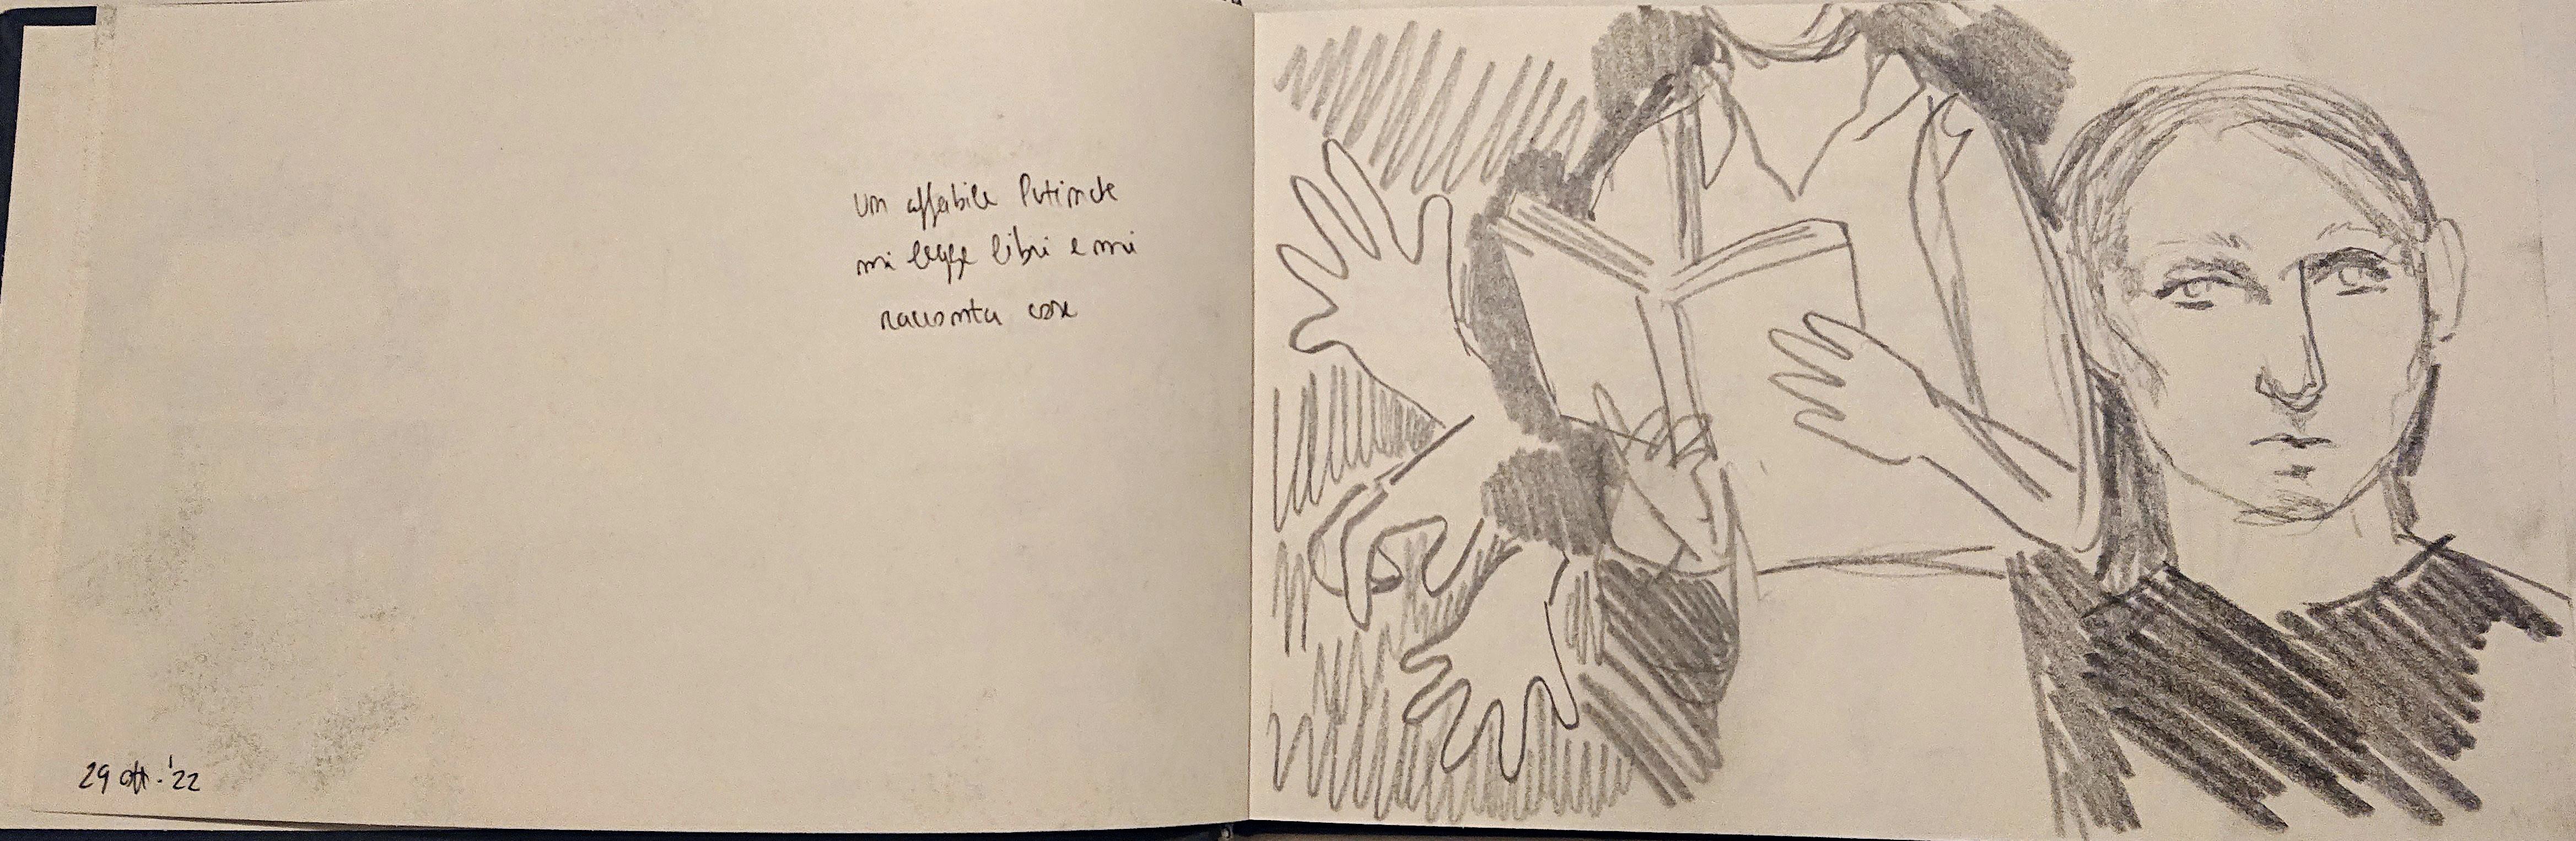 Un affabile
mi legge libri e mi
racconta cose
29 ott. '22